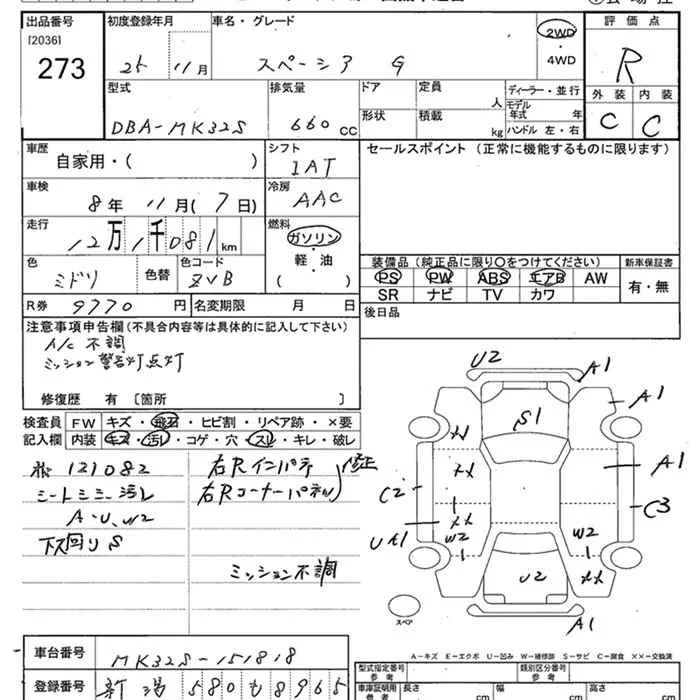 出品番号 初度登録年月 車名・グレード 評価点
[2036]
273 25 11月 スペーシア G 2WD ・ 4WD R
型式 排気量 ドア 定員 人 ディーラー・並行
モデル年式 年
外装 内装
DBA-MK32S 660cc 形状 積載 kg ハンドル 左・右 C C
車歴 シフト セールスポイント (正常に機能するものに限ります)
自家用・( ) IAT
車検 冷房
8年 11月(7日) AAC
走行 燃料
12万1千081km ガソリン
軽・油
( )
色 色替 色コード
ミドリ ZVB
装備品(純正品に限り○をつけてください) 新車保証書
PS PW ABS エアB AW 有・無
SR ナビ TV カワ
R券 9770円 名変期限 月 日
後日品
注意事項申告欄(不具合内容等は具体的に記入して下さい)
A/C 不調
ミッション警告灯点灯
修復歴 有 〔箇所 〕
検査員 FW キズ・飛石・ヒビ割・リペア跡・×要
記入欄 内装 キズ・汚レ・コゲ・穴・スレ・キレ・破レ
121082
シートシミ、汚レ
A・U、W2
下回りS
右Rインパネ
右Rコーナーパネル 修正
ミッション不調
U2 A1
A1
S1
A1
C2 C3
UA1 W2 W2
U2 XX
A1
スペア
A-キズ E-エクボ U-凹み W-補修跡 S-サビ C-腐食 XX-交換済
車台番号 MK32S-151818
登録番号 新潟 580 も 8965
型式指定番号 参考 類別区分番号 参考
車庫証明用 参考 長さ cm 幅 cm 高さ cm